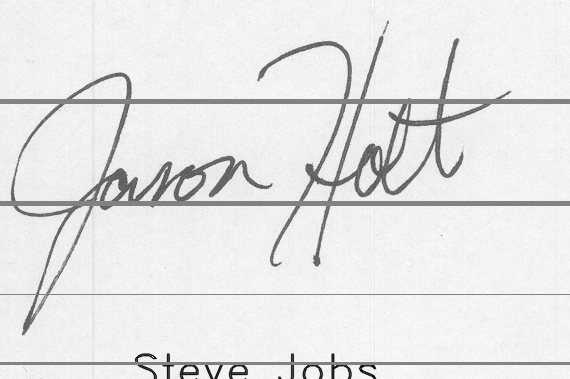 Jason Holt
Steve Jobs